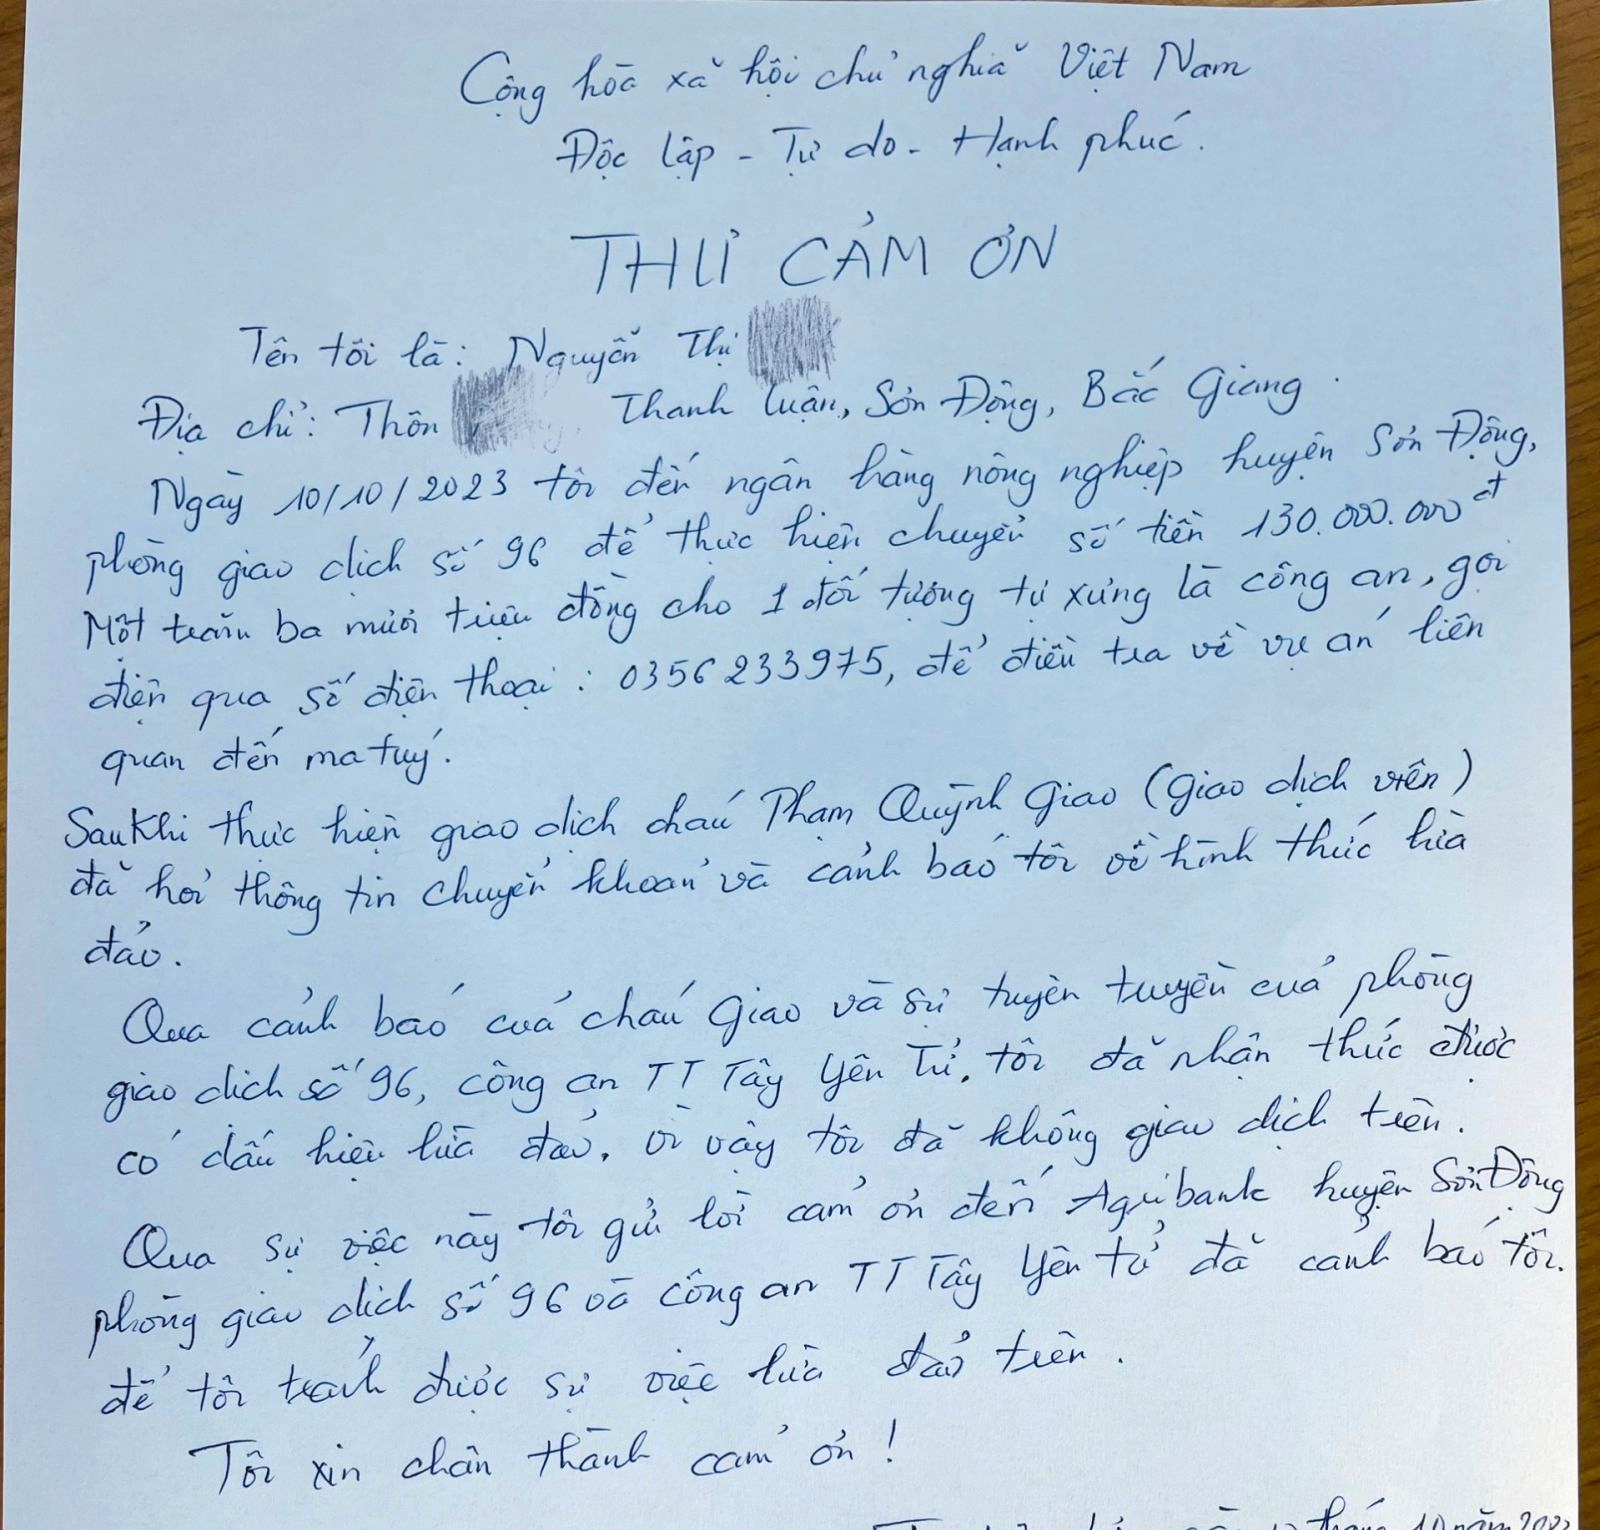 Cộng hòa xã hội chủ nghĩa Việt Nam
Độc lập - Tự do - Hạnh phúc.
THƯ CẢM ƠN
Tên tôi là: Nguyễn Thị
Địa chỉ: Thôn Thanh Luận, Sơn Động, Bắc Giang.
Ngày 10/10/2023 tôi đến ngân hàng nông nghiệp huyện Sơn Động,
phòng giao dịch số 96 để thực hiện chuyển số tiền 130.000.000đ
Một trăm ba mươi triệu đồng cho 1 đối tượng tự xưng là công an, gọi
điện qua số điện thoại: 0356233975, để điều tra về vụ án liên
quan đến ma tuý.
Sau khi thực hiện giao dịch cháu Phạm Quỳnh Giao (Giao dịch viên)
đã hỏi thông tin chuyển khoản và cảnh báo tôi về hình thức lừa
đảo.
Qua cảnh báo của cháu Giao và sự tuyên truyền của phòng
giao dịch số 96, công an TT Tây Yên Tử, tôi đã nhận thức được
có dấu hiệu lừa đảo, vì vậy tôi đã không giao dịch tiền.
Qua sự việc này tôi gửi lời cảm ơn đến Agribank huyện Sơn Động
phòng giao dịch số 96 và công an TT Tây Yên Tử đã cảnh báo tôi.
để tôi tránh được sự việc lừa đảo tiền.
Tôi xin chân thành cảm ơn!
tháng 10 năm